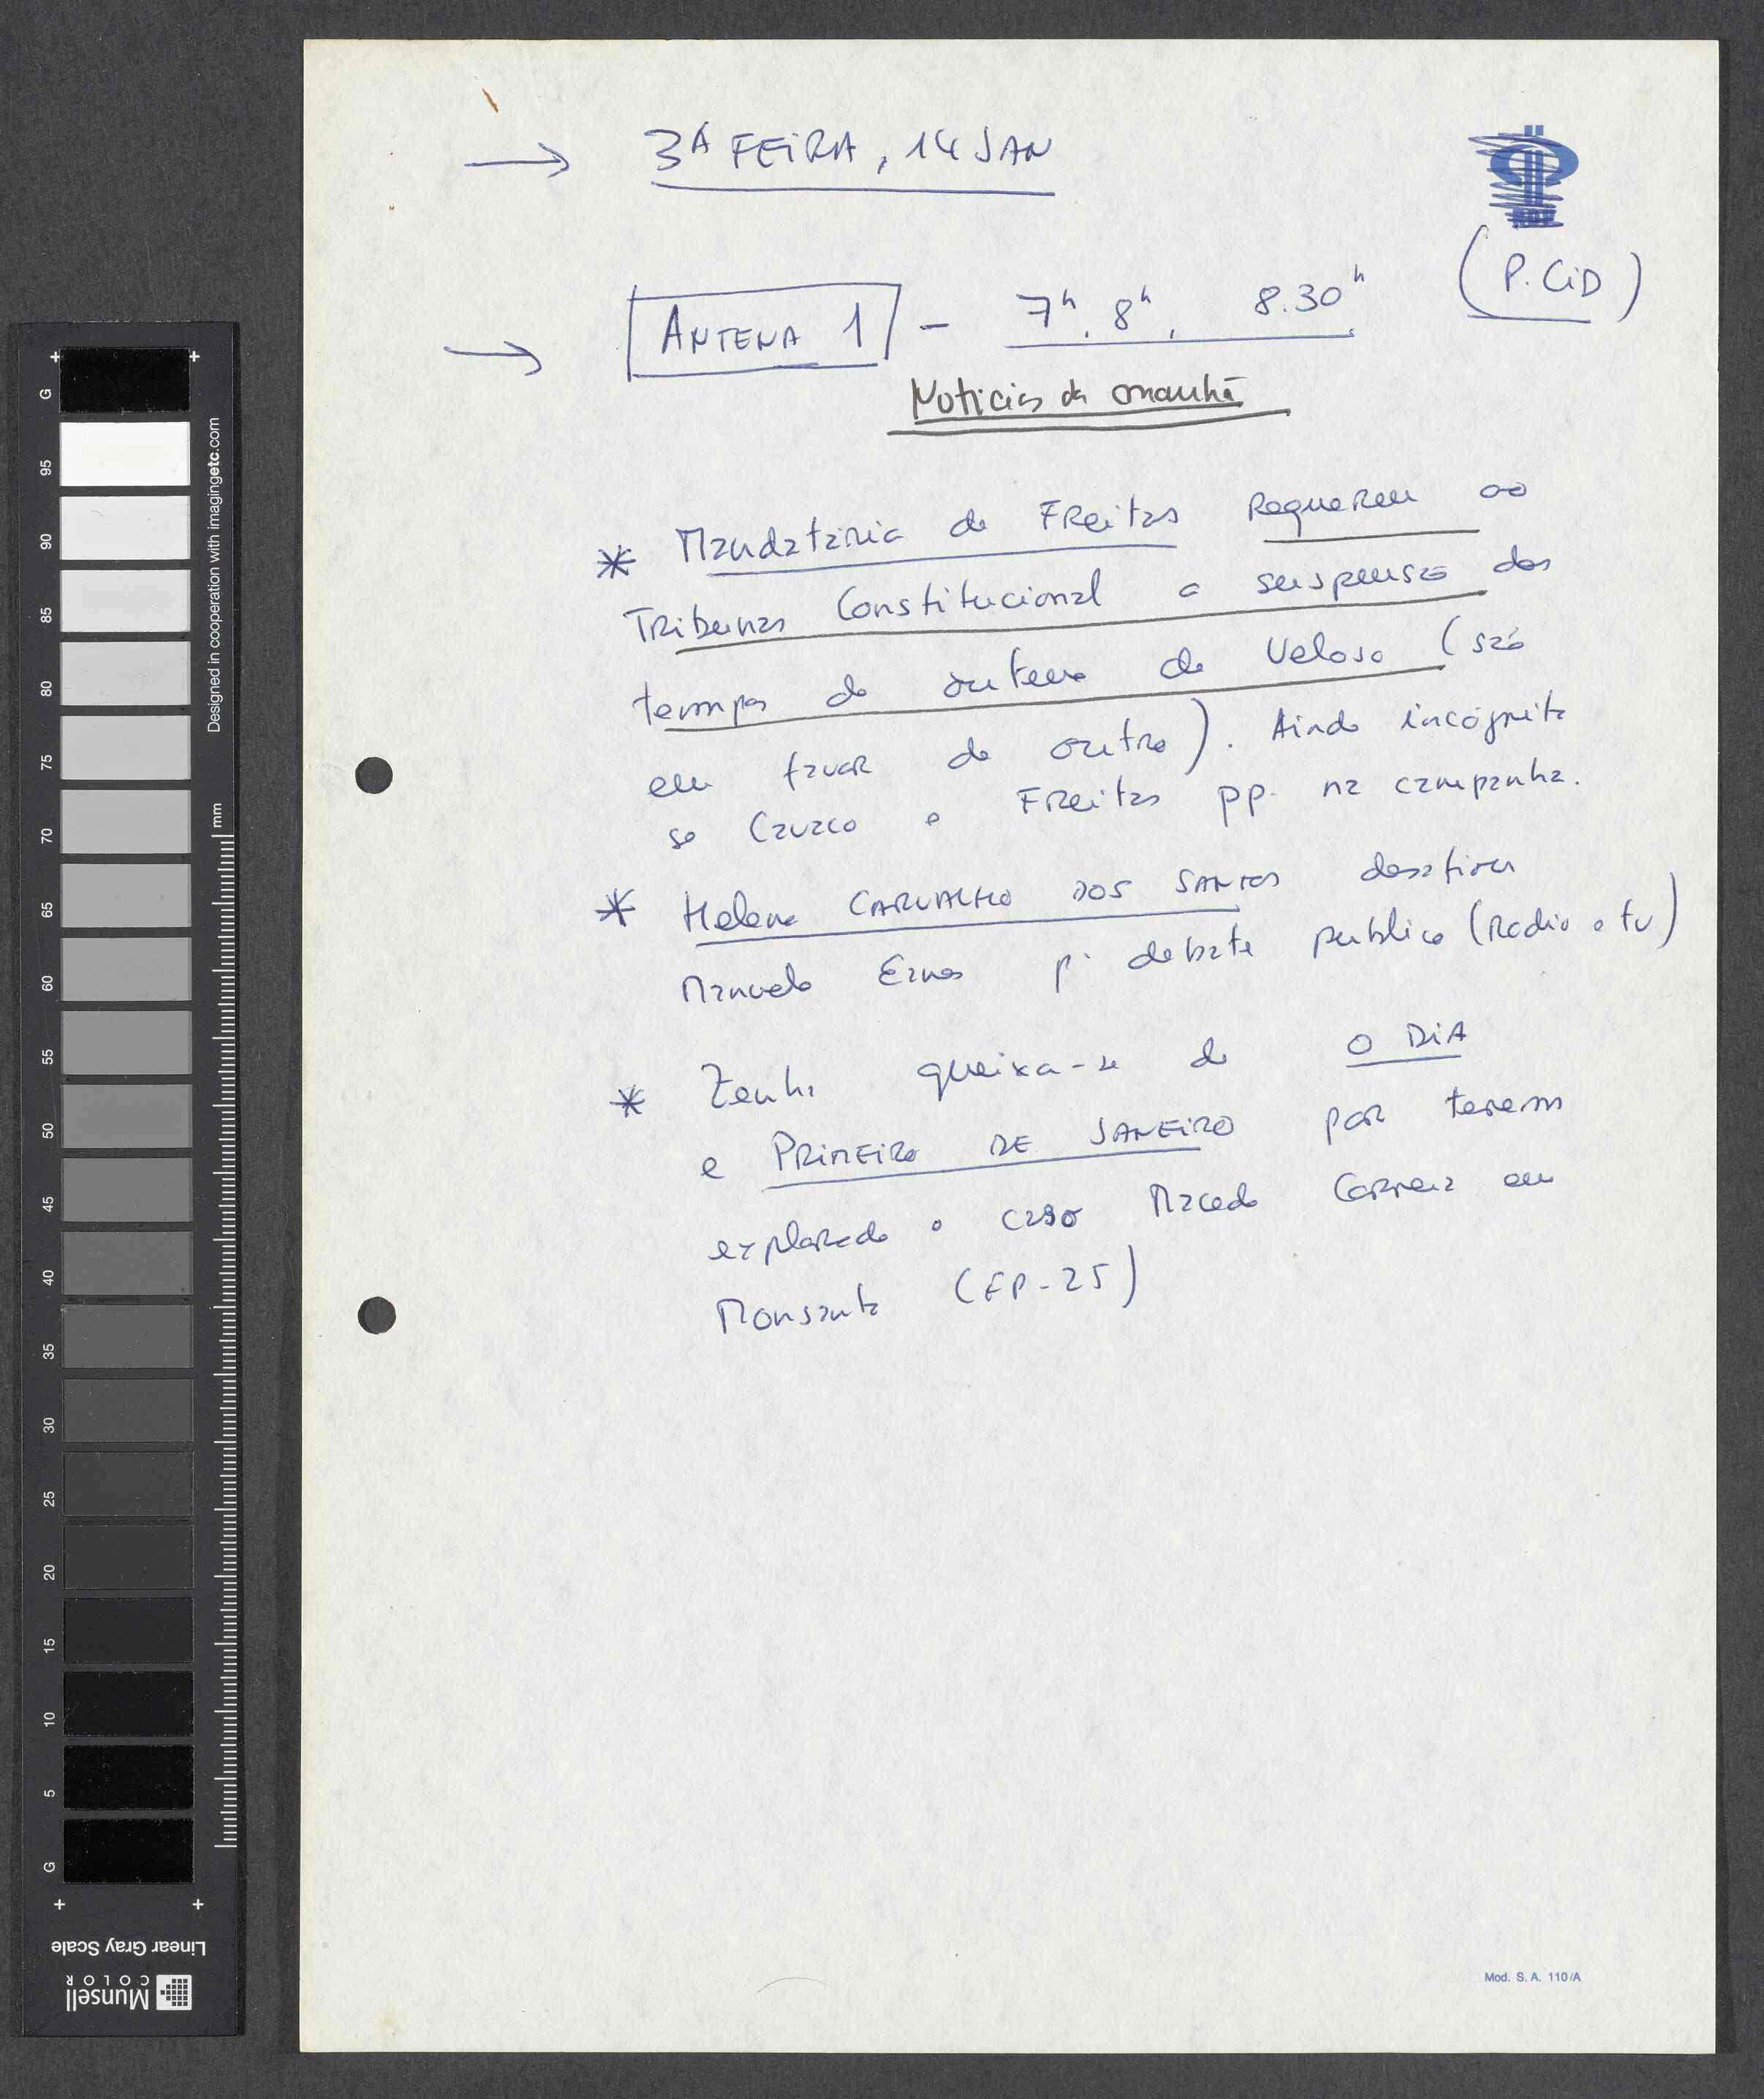 → 3ª FEIRA, 14 JAN
(P. CID)
→ ANTENA 1 - 7h, 8h, 8.30h
Noticias da manhã
* Mandatária de Freitas requereu ao
Tribunas Constitucional a suspensão dos
tempos de antena de Veloso (são
em favor de outro). Ainda incógnita
se Cavaco e Freitas pp. na campanha.
* Helena CARVALHO DOS SANTOS desafiou
Manuela Eanes p. debate publico (Radio e tv)
* Zenha queixa-se de O DIA
e PRIMEIRO DE JANEIRO por terem
explorado o caso Macedo Correia em
Monsanto (FP-25)
Mod. S. A. 110/A
G
95
90
85
80
75
70
65
60
55
50
45
40
35
30
25
20
15
10
5
G
mm
Designed in cooperation with imagingetc.com
Linear Gray Scale
Munsell
COLOR